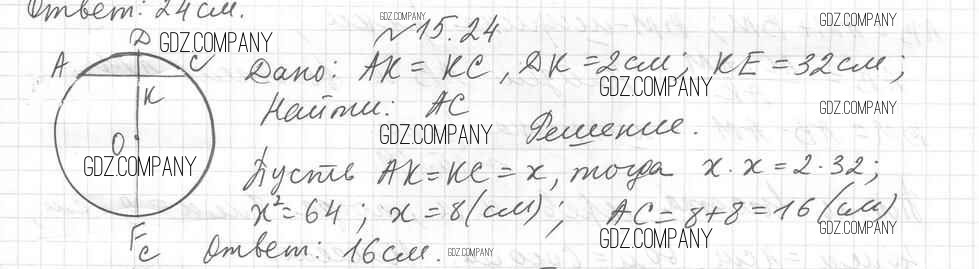 Ответ: 24 см.
№15.24
D
A
C
K
O
E
c
Дано: AK = KC, DK = 2 см; KE = 32 см;
Найти: AC
Решение.
Пусть AK = KC = x, тогда x · x = 2 · 32;
x² = 64; x = 8 (см); AC = 8 + 8 = 16 (см)
Ответ: 16 см.
GDZ.COMPANY
GDZ.COMPANY
GDZ.COMPANY
GDZ.COMPANY
GDZ.COMPANY
GDZ.COMPANY
GDZ.COMPANY
GDZ.COMPANY
GDZ.COMPANY
GDZ.COMPANY